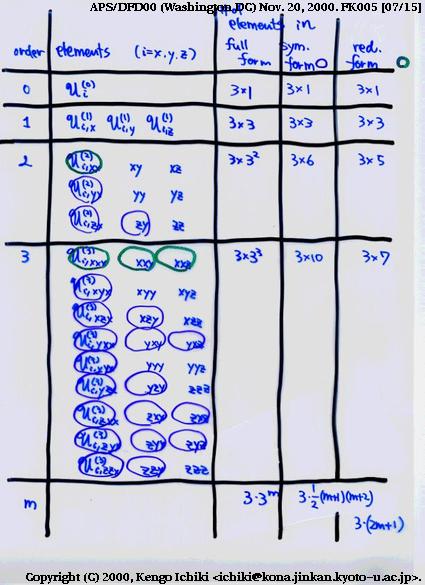 APS/DFD00 (Washington, DC) Nov. 20, 2000. FK005 [07/15]
elements in
order elements (i=x,y,z) full form sym. form red. form
0 u_i^(0) 3×1 3×1 3×1
1 u_i,x^(1) u_i,y^(1) u_i,z^(1) 3×3 3×3 3×3
2 u_i,xx^(2) xy xz 3×3² 3×6 3×5
u_i,yx^(2) yy yz
u_i,zx^(2) zy zz
3 u_i,xxx^(3) xxy xxz 3×3³ 3×10 3×7
u_i,xyx^(3) xyy xyz
u_i,xzx^(3) xzy xzz
u_i,yxx^(3) yxy yxz
yyy yyz
u_i,yzx^(3) yzy
u_i,zxx^(3) zxy zxz
u_i,zyx^(3) zyy zyz
u_i,zzx^(3) zzy zzz
m 3·3^m 3·½(m+1)(m+2)
3·(2m+1)
Copyright (C) 2000, Kengo Ichiki <ichiki@kona.jinkan.kyoto-u.ac.jp>.